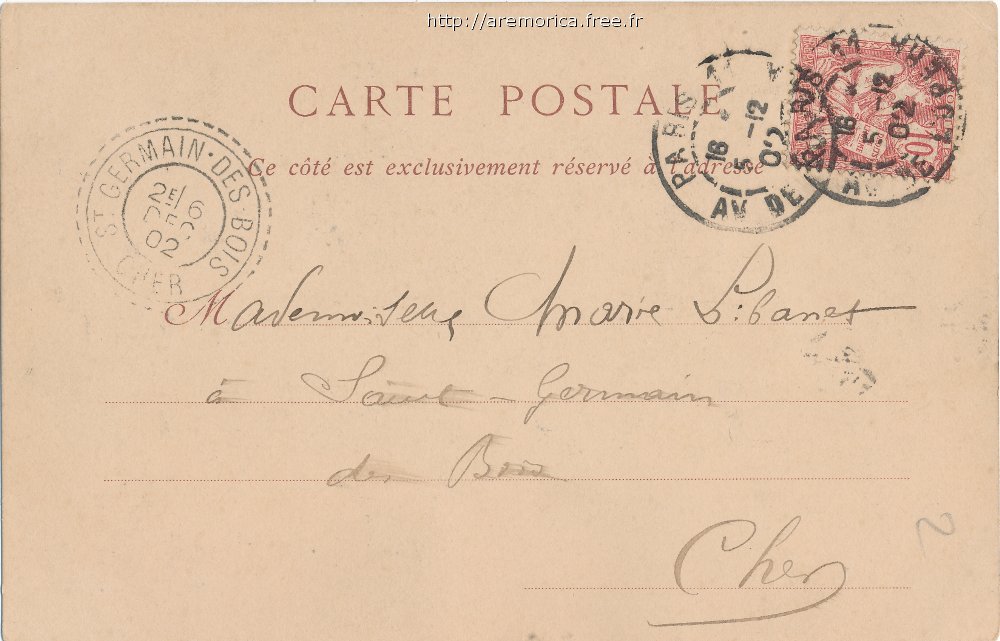 http://aremorica.free.fr
CARTE POSTALE
Ce côté est exclusivement réservé à l'adresse
PARIS
16 5-12 02
AV DE
16 5-12 02
10
ST GERMAIN-DES-BOIS
2E/6
DEC
02
CHER
Mademoiselle Marie Libanet
à Saint-Germain
des Bois
Cher
2